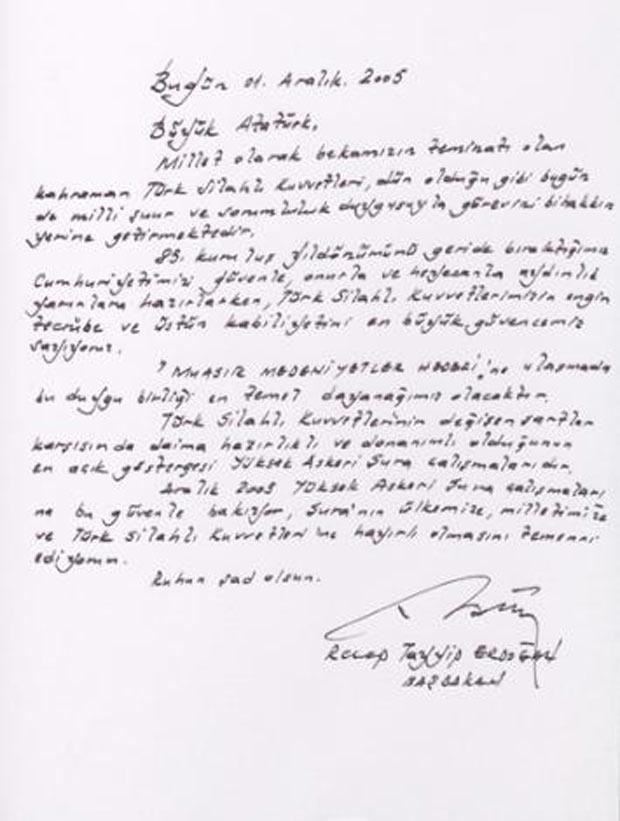 Bugün 01. Aralık. 2005
Büyük Atatürk,
Millet olarak bekamızın teminatı olan
kahraman Türk Silahlı Kuvvetleri, dün olduğu gibi bugün
de milli şuur ve sorumluluk duygusuyla görevini bihakkın
yerine getirmektedir.
85. kuruluş yıldönümünü geride bıraktığımız
Cumhuriyetimizi güvenle, onurla ve heyecanla aydınlık
yarınlara hazırlarken, Türk Silahlı Kuvvetlerimizin engin
tecrübe ve üstün kabiliyetini en büyük güvencemiz
sayıyoruz.
"MUASIR MEDENİYETLER HEDEFİ"ne ulaşmada
bu duygu birliği en temel dayanağımız olacaktır.
Türk Silahlı Kuvvetlerinin değişen şartlar
karşısında daima hazırlıklı ve donanımlı olduğunun
en açık göstergesi Yüksek Askeri Şura çalışmalarıdır.
Aralık 2005 Yüksek Askeri Şura çalışmaları
na bu güvenle bakıyor, Şura'nın ülkemize, milletimize
ve Türk Silahlı Kuvvetleri'ne hayırlı olmasını temenni
ediyorum.
Ruhun şad olsun.
Recep Tayyip ERDOĞAN
BAŞBAKAN